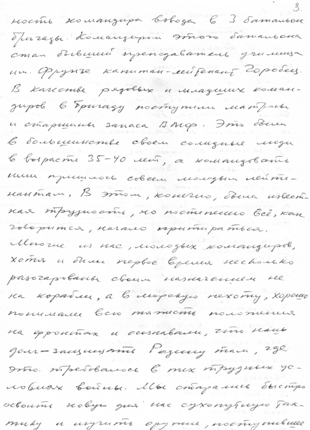 3
ность командира взвода в 3 батальоне
бригады. Командиром этого батальона
стал бывший преподаватель училища
им. Фрунзе капитан-лейтенант Горобец.
В качестве рядовых и младших коман-
диров в бригаду поступили матросы
и старшины запаса ВМФ. Это были
в большинстве своем солидные люди
в возрасте 35-40 лет, а командовать
ими пришлось совсем молодым лейте-
нантам. В этом, конечно, была извест-
ная трудность, но постепенно всё, как
говорится, начало притираться.
Многие из нас, молодых командиров,
хотя и были первое время несколько
разочарованы своим назначением не
на корабли, а в морскую пехоту, хорошо
понимали всю тяжесть положения
на фронтах и сознавали, что наш
долг-защищать Родину там, где
это требовалось в тех трудных ус-
ловиях войны. Мы старались быстро
освоить новую для нас сухопутную так-
тику и изучить оружие, поступившее